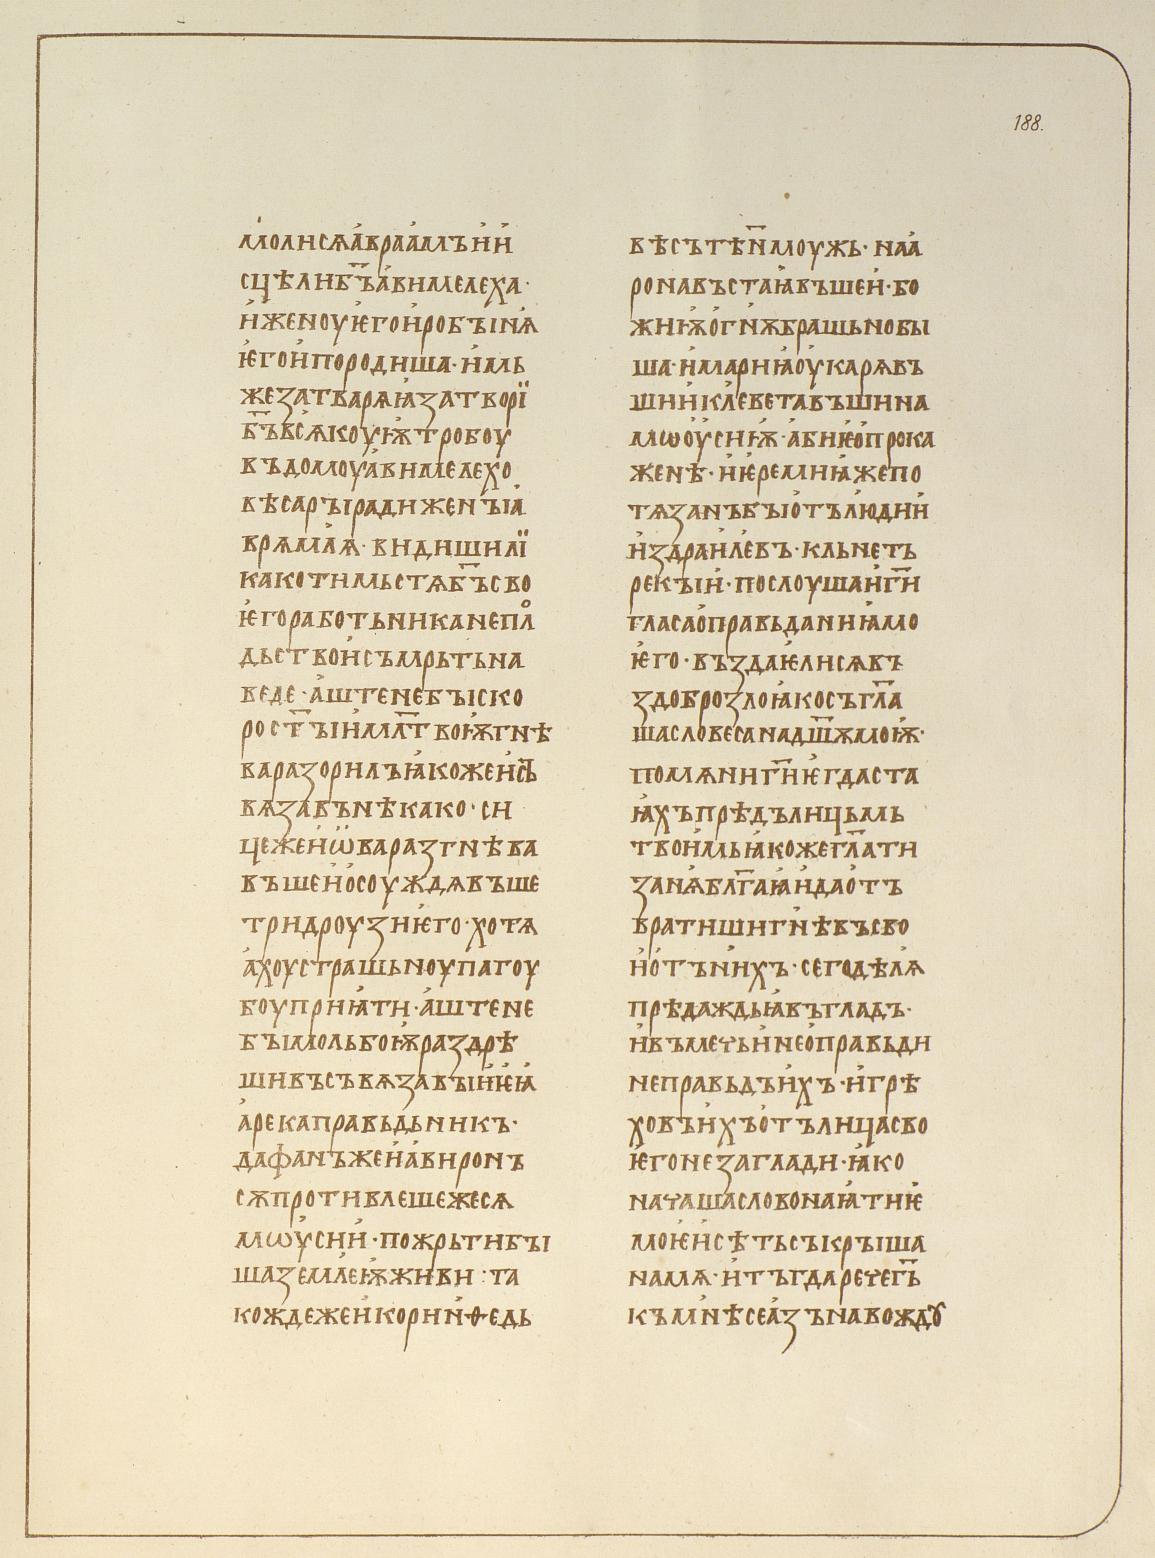 188.
молисѧаврамъии
сцѣлиб҃ъавимелеха·
иженоуѥгоиробъінѧ
ѥгоипородиша·имь
жезатварѧꙗзаткорї
б҃ъвсѧкоуѭтробоу
въдомоуавимелехо
вѣсаръірадиженъіа
врѧмлѧ·видишилї
какотимьстѧб҃ъсво
ѥгоработьниканепл
дьствоисъмрьтьна
веде·аштенебъіско
рост҃ъіимл҃твоѭгнѣ
варазорилъꙗкожеис҃ъ
вѧзавънѣкако·си
цежеиѡваразгнѣва
въшеиосоуждѧвъше
тридроузиѥго·хотѧ
ахоустрашьноупагоу
боуприꙗти·аштене
бъімольбоѭраздрѣ
шивъсъвѧзавъіиѥꙗ
арекаправьдьникъ·
дафанъжеиавиронъ
сѫпротивлешежесѧ
мѡѵсии·пожрьтибъі
шаземлеѭживи:та
кождежеикорииѳедь
вѣсътѣн҃моужь·наа
ронавъстаꙗвъшеи·бо
жиѭогнѫбрашьнобы
ша·имариꙗоукарѧвъ
шииклеветавъшина
мѡоусиѭ·абиѥопрока
женѣ·иѥремиꙗжепо
тѧзанъбъіотълюдии
издраилевъ·кльнеть
рекъіи·послоушаиг҃и
гласаоправьданиꙗмо
ѥго·въздаѥлисѧвъ
здоброзлоꙗкосъгл҃а
шасловесанадш҃ѫмоѭ·
помѧниг҃иѥгдаста
ꙗхъпрѣдълицьмь
твоимьꙗкожегл҃ати
занѧбл҃гаꙗидаотъ
вратишигнѣвъсво
иотънихъ·сегодѣлѧ
прѣдаждьꙗвъгладъ·
ивъмечьинеоправьди
неправьдъихъ·игрѣ
ховъихъотълицасво
ѥгонезаглади·ꙗко
начашасловонаꙗтиѥ
моѥисѣтьсъікръіша
намѧ·итъгдаречег҃ь
къмнѣсеазънавождꙋ